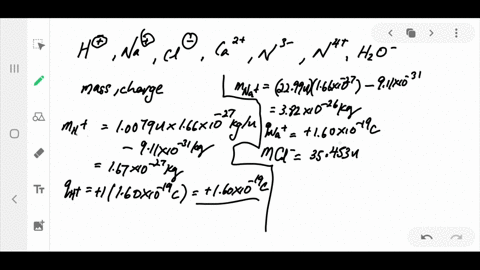 H⁺, Na⁺, Cl⁻, Ca²⁺, N³⁻, N⁴⁺, H₂O⁻
mass, charge
m_H⁺ = 1.0079u × 1.66×10⁻²⁷ kg/u
- 9.11×10⁻³¹ kg
= 1.67×10⁻²⁷ kg
q_H⁺ = +1(1.60×10⁻¹⁹ C) = +1.60×10⁻¹⁹ C
m_Na⁺ = (22.99u)(1.66×10⁻²⁷) - 9.11×10⁻³¹
= 3.82×10⁻²⁶ kg
q_Na⁺ = +1.60×10⁻¹⁹ C
m_Cl⁻ = 35.453u
Tт